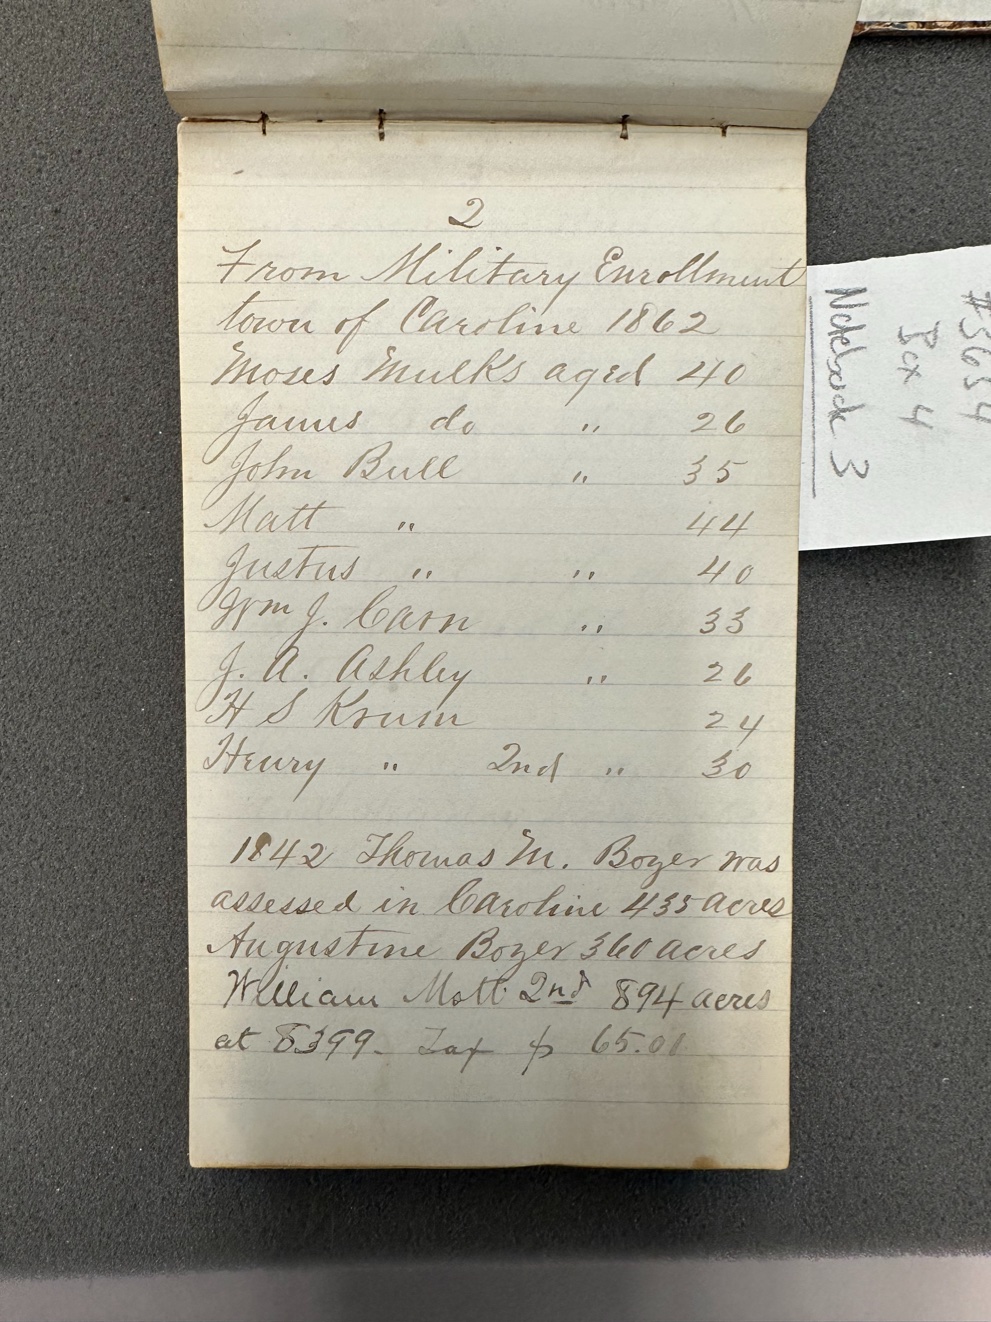 2
From Military Enrollment
town of Caroline 1862
Moses Mulks aged 40
James do " 26
John Bull " 35
Matt " 44
Justus " " 40
Wm J. Carn " 33
J. A. Ashley " 26
H S Krum 24
Henry " 2nd " 30
1842 Thomas M. Bozer was
assessed in Caroline 435 acres
Augustine Bozer 360 acres
William Mott 2nd 894 acres
at 8399. Tax $ 65.01
#3654
Box 4
Notebook 3